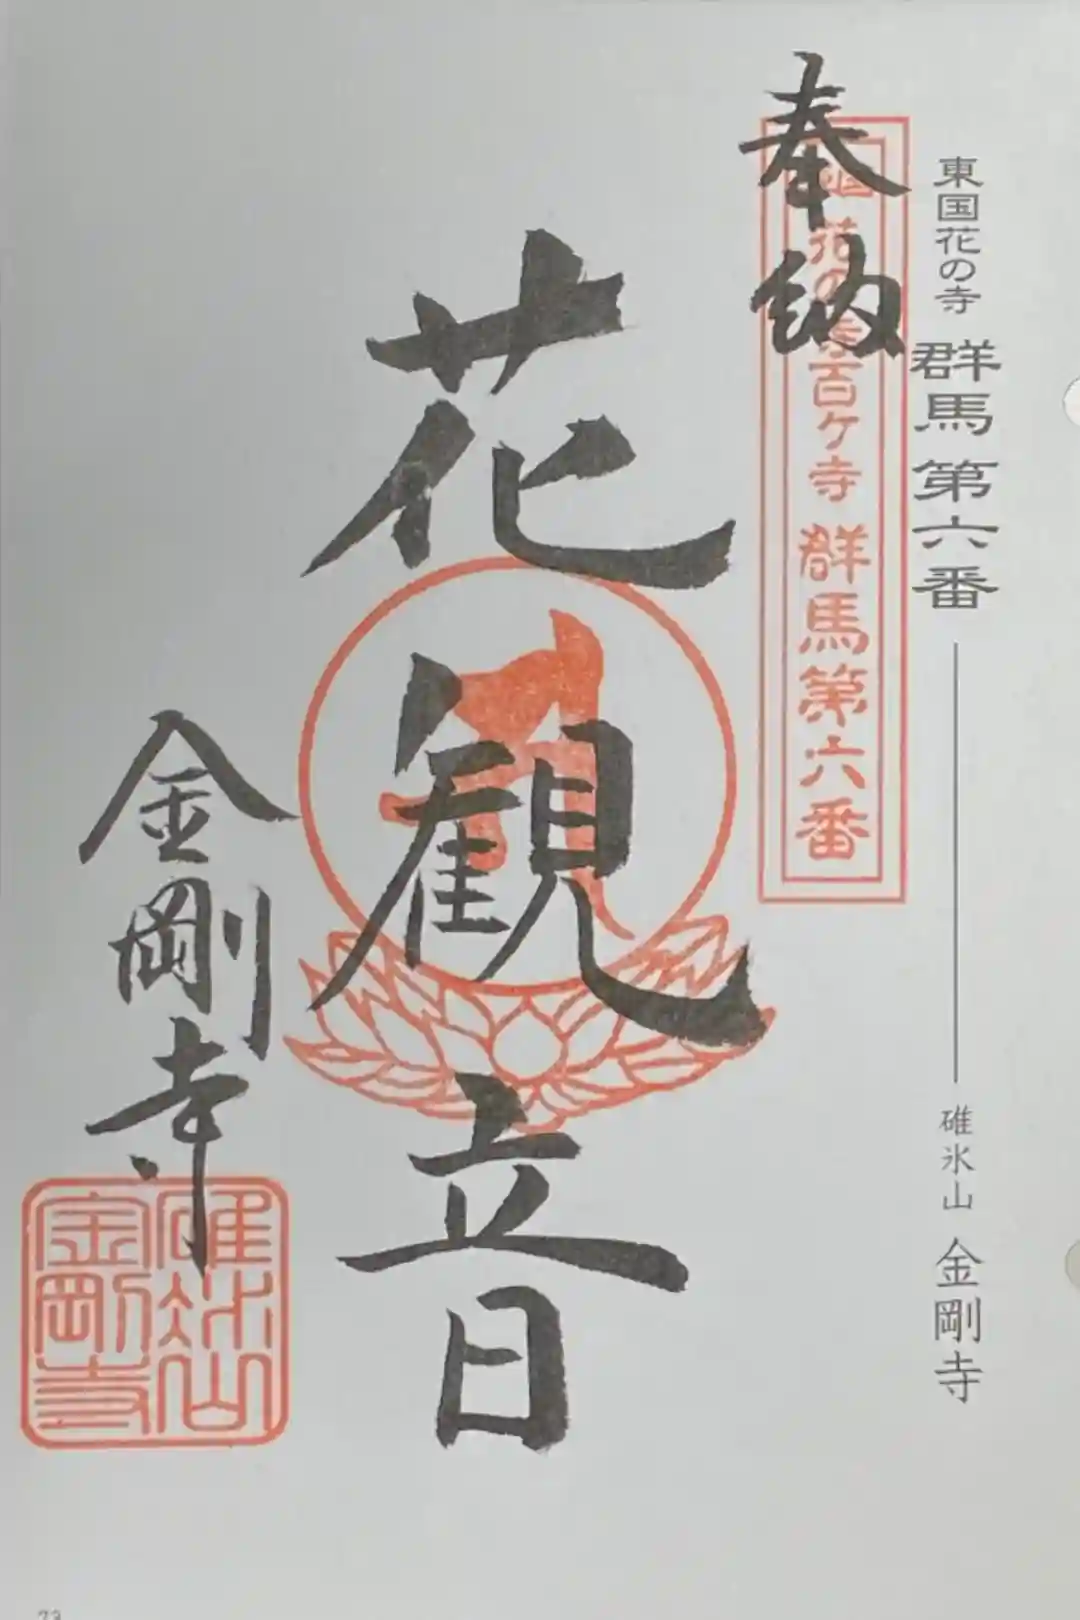 東国花の寺 群馬第六番 碓氷山 金剛寺
奉納
国花の寺百ケ寺 群馬第六番
花観音
金剛寺
碓氷山
金剛寺
73